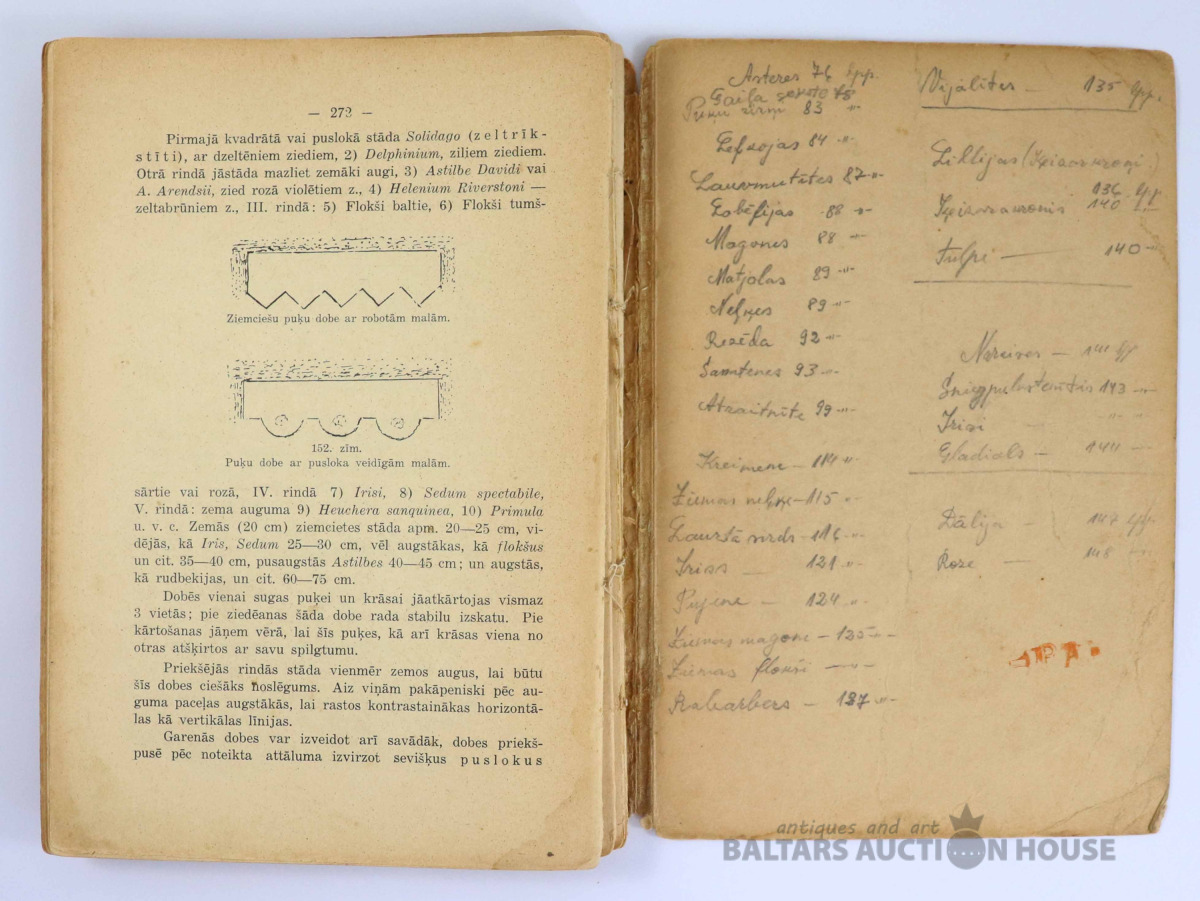 — 272 —
Pirmajā kvadrātā vai puslokā stāda Solidago (zeltrīk-
stīti), ar dzeltēniem ziediem, 2) Delphinium, ziliem ziediem.
Otrā rindā jāstāda mazliet zemāki augi, 3) Astilbe Davidi vai
A. Arendsii, zied rozā violētiem z., 4) Helenium Riverstoni —
zeltabrūniem z., III. rindā: 5) Flokši baltie, 6) Flokši tumš-
Ziemciešu puķu dobe ar robotām malām.
152. zīm.
Puķu dobe ar pusloka veidīgām malām.
sārtie vai rozā, IV. rindā 7) Irisi, 8) Sedum spectabile,
V. rindā: zema auguma 9) Heuchera sanquinea, 10) Primula
u. v. c. Zemās (20 cm) ziemcietes stāda apm. 20—25 cm, vi-
dējās, kā Iris, Sedum 25—30 cm, vēl augstākas, kā flokšus
un cit. 35—40 cm, pusaugstās Astilbes 40—45 cm; un augstās,
kā rudbekijas, un cit. 60—75 cm.
Dobēs vienai sugas puķei un krāsai jāatkārtojas vismaz
3 vietās; pie ziedēanas šāda dobe rada stabilu izskatu. Pie
kārtošanas jāņem vērā, lai šīs puķes, kā arī krāsas viena no
otras atšķirtos ar savu spilgtumu.
Priekšējās rindās stāda vienmēr zemos augus, lai būtu
šīs dobes ciešāks noslēgums. Aiz viņām pakāpeniski pēc au-
guma paceļas augstākās, lai rastos kontrastainākas horizontā-
las kā vertikālas līnijas.
Garenās dobes var izveidot arī savādāk, dobes priekš-
pusē pēc noteikta attāluma izvirzot sevišķus puslokus
Asteres 76 lpp.
Gaiļa sekste 78
Puķu zirņi 83 "
Lefkojas 84 "
Lauvmutītes 87 "
Lobēlijas 88 "
Magones 88 "
Matjolas 89 "
Neļķes 89 "
Rezēda 92 "
Samtenes 93 "
Atraitnīte 99 "
Kreimene — 114 "
Ziemas neļķe — 115 "
Lauztā sirds — 116 "
Iriss — 121 "
Pujene — 124 "
Ziemas magone — 125 "
Ziemas flokši — "
Rabarbars — 137 "
Vijolītes — 135 lpp.
136 lpp
140
Tulpe — 140 "
Narcises — 141 lpp
Sniegpulkstenītis 143 "
Irisi " "
Gladiols — 144 "
Dālija — 147 lpp.
Roze — 148 "
antiques and art
BALTARS AUCTION HOUSE